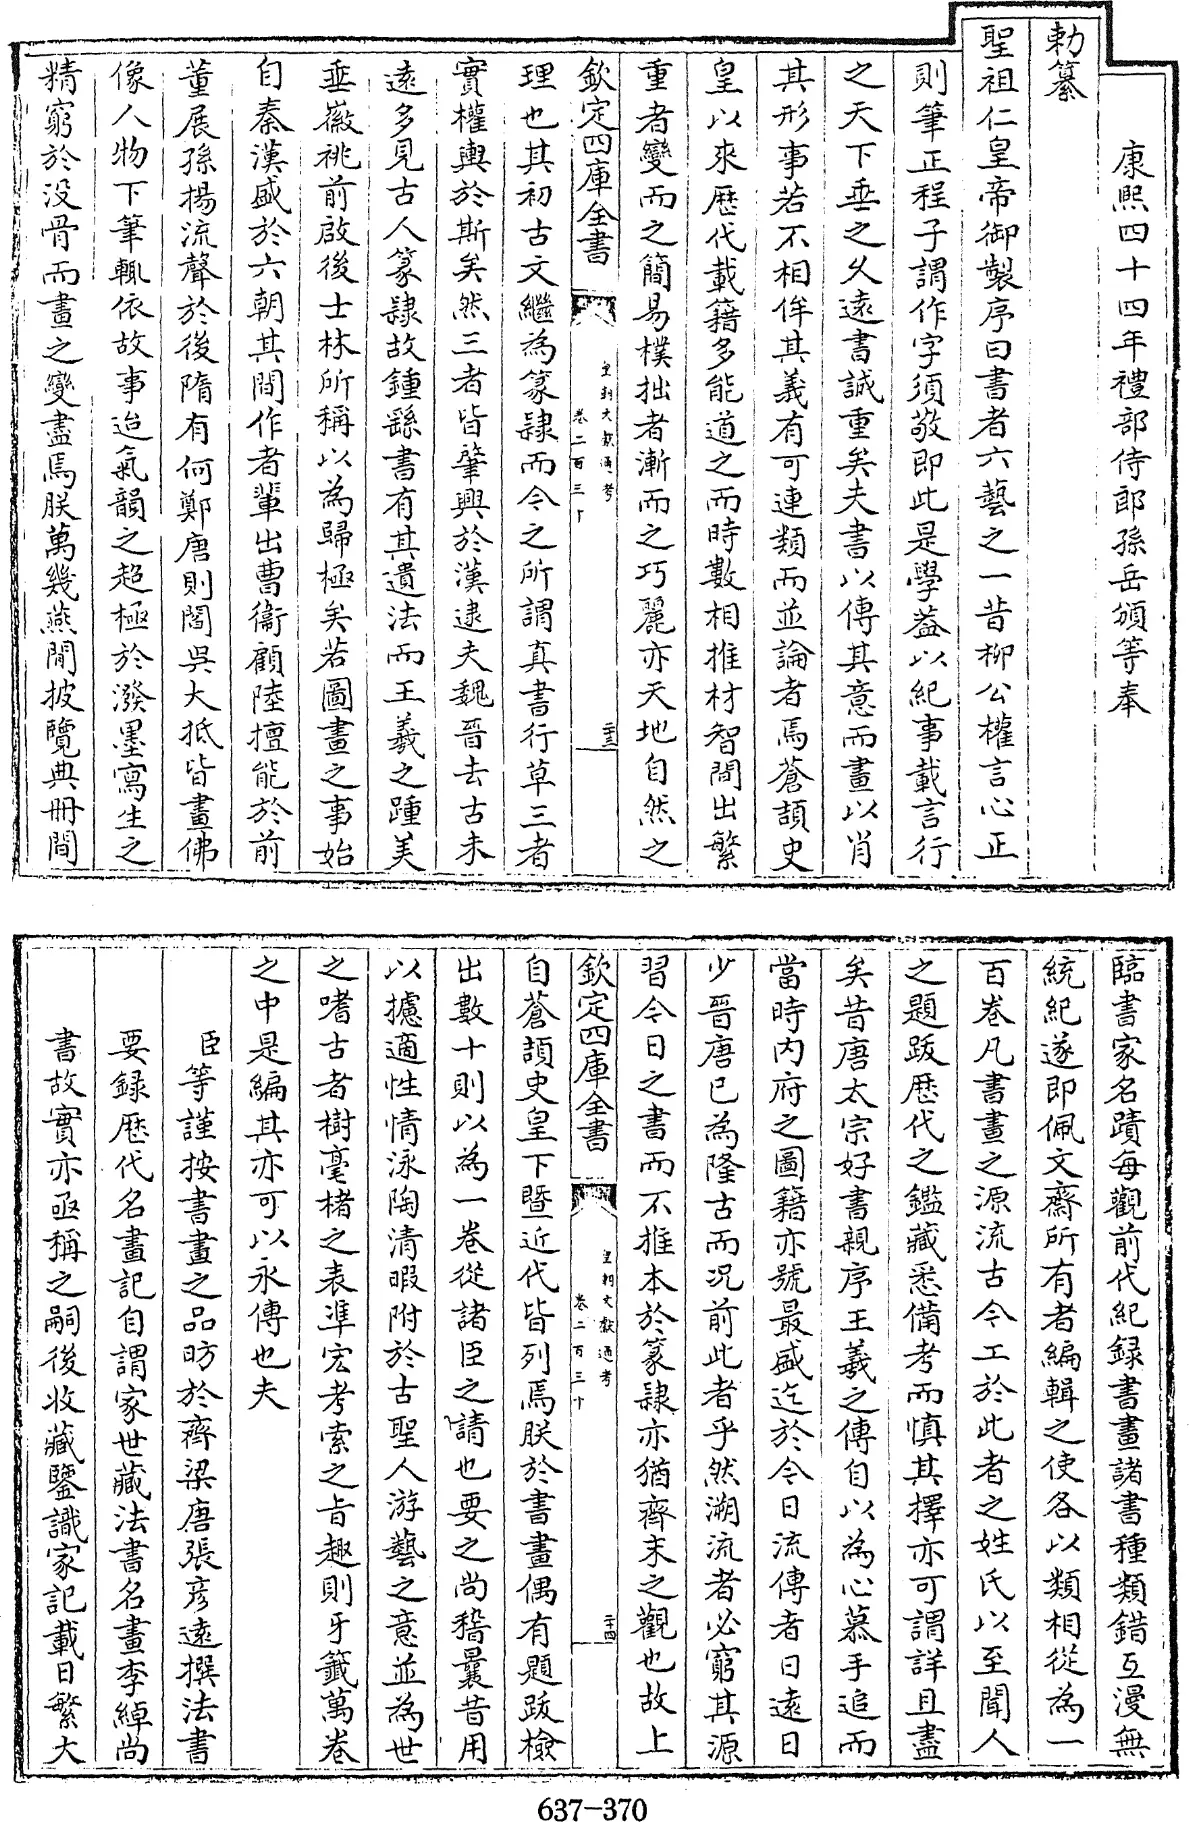 康熙四十四年禮部侍郎孫岳頒等奉
勅纂
聖祖仁皇帝御製序曰書者六藝之一昔柳公權言心正
則筆正程子謂作字須敬即此是學葢以紀事載言行
之天下垂之久遠書誠重矣夫書以傳其意而畫以肖
其形事若不相侔其義有可連類而並論者焉蒼頡史
皇以來歴代載籍多能道之而時數相推材智間出繁
重者變而之簡易樸拙者漸而之巧麗亦天地自然之
欽定四庫全書
皇朝文獻通考
卷二百三十
二十三
理也其初古文繼為篆隷而今之所謂真書行草三者
實權輿於斯矣然三者皆肇興於漢逮夫魏晉去古未
遠多見古人篆隷故鍾繇書有其遺法而王羲之踵美
垂徽祧前啟後士林所稱以為歸極矣若圖畫之事始
自秦漢盛於六朝其間作者輩出曹衞顧陸擅能於前
董展孫楊流聲於後隋有何鄭唐則閻吳大抵皆畫佛
像人物下筆輒依故事迨氣韻之超極於潑墨寫生之
精窮於没骨而畫之變盡焉朕萬幾燕閒披覽典冊間
臨書家名蹟每觀前代紀録書畫諸書種類錯互漫無
統紀遂即佩文齋所有者編輯之使各以類相從為一
百卷凡書畫之源流古今工於此者之姓氏以至聞人
之題跋歴代之鑑藏悉備考而慎其擇亦可謂詳且盡
矣昔唐太宗好書親序王羲之傳自以為心慕手追而
當時内府之圖籍亦號最盛迄於今日流傳者日遠日
少晉唐已為隆古而况前此者乎然溯流者必窮其源
習今日之書而不推本於篆隷亦猶齊末之觀也故上
欽定四庫全書
皇朝文獻通考
卷二百三十
二十四
自蒼頡史皇下暨近代皆列焉朕於書畫偶有題跋檢
出數十則以為一卷從諸臣之請也要之尚稽曩昔用
以攄適性情泳陶清暇附於古聖人游藝之意並為世
之嗜古者樹毫楮之表準宏考索之旨趣則牙籤萬卷
之中是編其亦可以永傳也夫
臣等謹按書畫之品昉於齊梁唐張彥遠撰法書
要録歴代名畫記自謂家世藏法書名畫李綽尚
書故實亦亟稱之嗣後收藏鑒識家記載日繁大
637-370